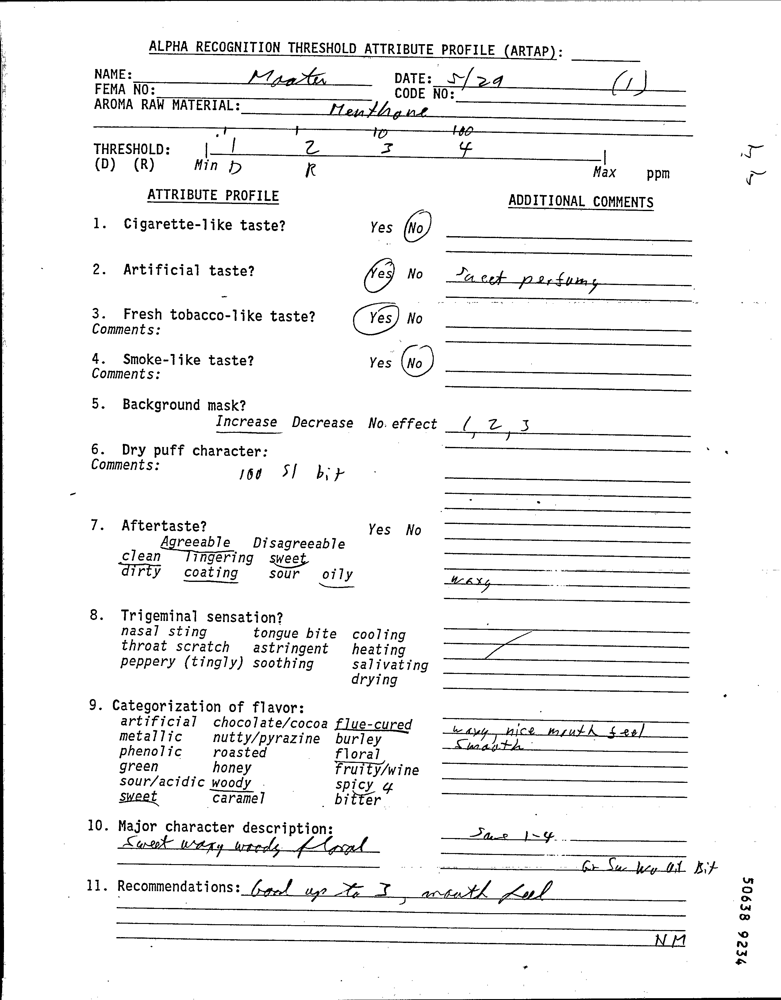 ALPHA RECOGNITION THRESHOLD ATTRIBUTE PROFILE (ARTAP):
NAME: Moates DATE: 5/29 (1)
FEMA NO: CODE NO:
AROMA RAW MATERIAL: Menthone
.1 1 10 100
THRESHOLD: 1 2 3 4
(D) (R) Min D R Max ppm
ATTRIBUTE PROFILE ADDITIONAL COMMENTS
1. Cigarette-like taste? Yes No
2. Artificial taste? Yes No Sweet perfumy
3. Fresh tobacco-like taste? Yes No
Comments:
4. Smoke-like taste? Yes No
Comments:
5. Background mask?
Increase Decrease No effect 1, 2, 3
6. Dry puff character:
Comments:
100 Sl bit
7. Aftertaste? Yes No
Agreeable Disagreeable
clean lingering sweet
dirty coating sour oily waxy
8. Trigeminal sensation?
nasal sting tongue bite cooling
throat scratch astringent heating
peppery (tingly) soothing salivating
drying
9. Categorization of flavor:
artificial chocolate/cocoa flue-cured waxy, nice mouth feel
metallic nutty/pyrazine burley Smooth
phenolic roasted floral
green honey fruity/wine
sour/acidic woody spicy 4
sweet caramel bitter
10. Major character description: Same 1-4
Sweet waxy woody floral
Gr Sw Wo Bit
11. Recommendations: Good up to 3, mouth feel
NM
50638 9234